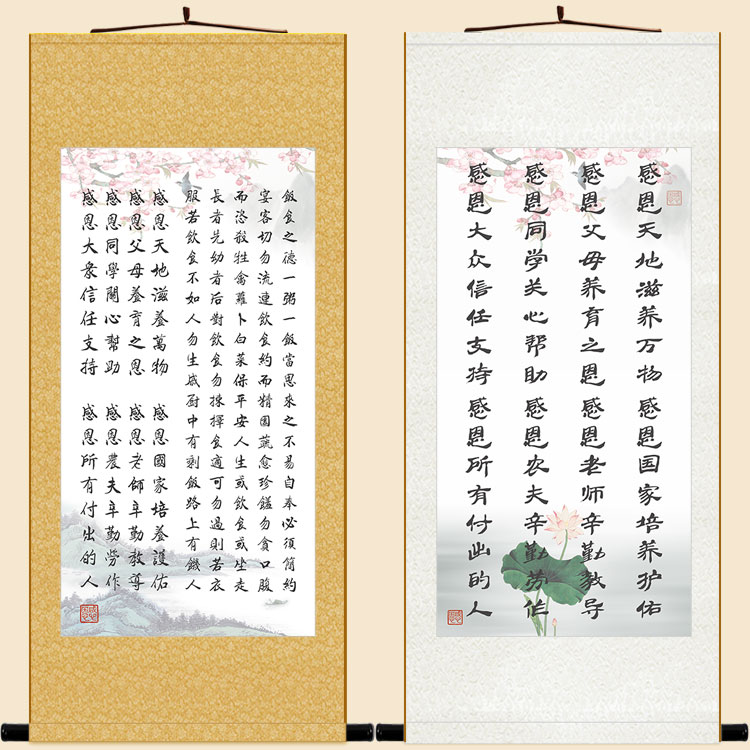 飯食之德一粥一飯當思來之不易自奉必須簡約
宴客切勿流連飲食約而精園蔬愈珍饈勿貪口腹
而恣殺牲禽蘿卜白菜保平安人生或飲食或坐走
長者先幼者后對飲食勿揀擇食適可勿過則若衣
服若飲食不如人勿生戚廚中有剩飯路上有饑人
感恩天地滋養萬物 感恩國家培養護佑
感恩父母養育之恩 感恩老師辛勤教導
感恩同學關心幫助 感恩農夫辛勤勞作
感恩大眾信任支持 感恩所有付出的人
感恩天地滋养万物感恩国家培养护佑
感恩父母养育之恩感恩老师辛勤教导
感恩同学关心帮助感恩农夫辛勤劳作
感恩大众信任支持感恩所有付出的人